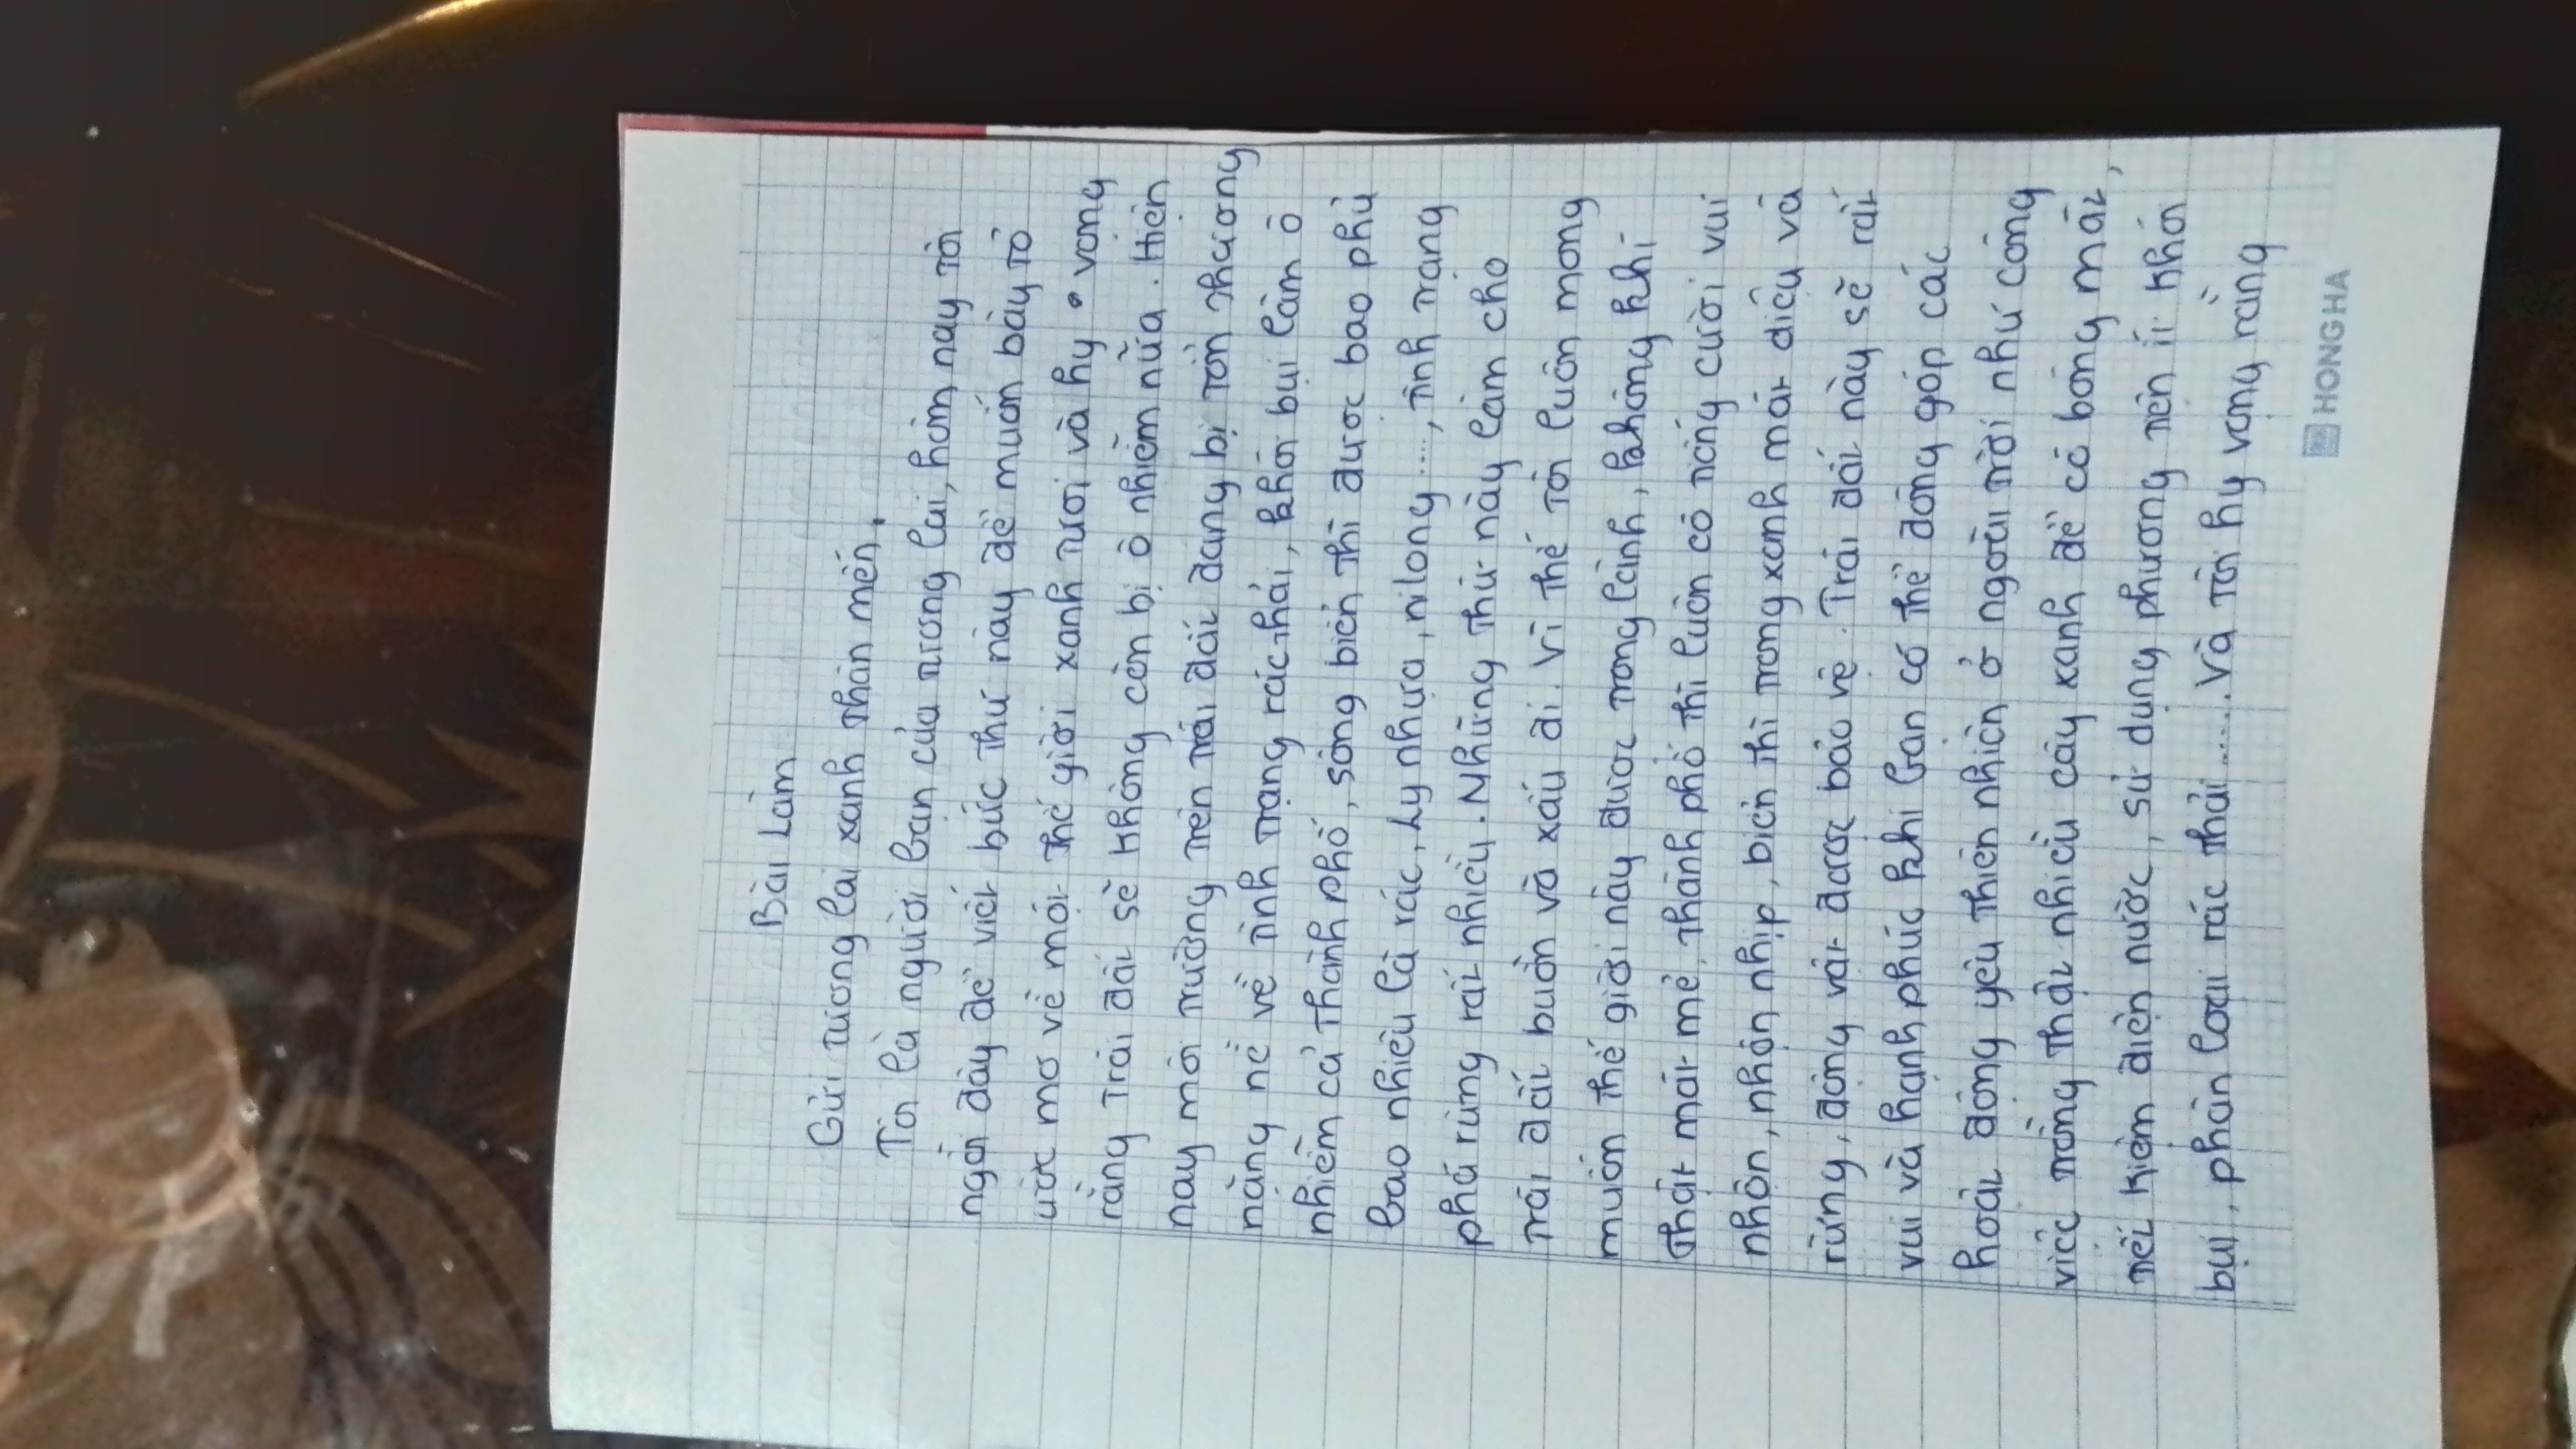 Bài Làm
Gửi tương lai xanh thân mến,
Tôi là người bạn của tương lai, hôm nay tôi
ngồi đây để viết bức thư này để muốn bày tỏ
ước mơ về một thế giới xanh tươi và hy vọng
rằng Trái đất sẽ không còn bị ô nhiễm nữa. Hiện
nay môi trường trên trái đất đang bị tổn thương
nặng nề về tình trạng rác thải, khói bụi làm ô
nhiễm cả thành phố, sông biển thì được bao phủ
bao nhiêu là rác, Ly nhựa, nilong...., tình trạng
phá rừng rất nhiều. Những thứ này làm cho
trái đất buồn và xấu đi. Vì thế tôi luôn mong
muốn thế giới này được trong lành, không khí
thật mát mẻ, thành phố thì luôn có tiếng cười vui
nhộn, nhộn nhịp, biển thì trong xanh mát diệu và
rừng, động vật được bảo vệ. Trái đất này sẽ rất
vui và hạnh phúc khi bạn có thể đóng góp các
hoạt động yêu thiên nhiên ở ngoài trời như công
việc trồng thật nhiều cây xanh để có bóng mát,
tiết kiệm điện nước, sử dụng phương tiện ít khói
bụi, phân loại rác thải..... Và tôi hy vọng rằng
HONG HA